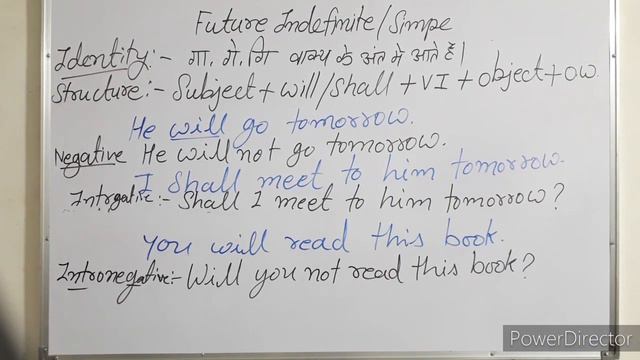 Future Indefinite/Simpe
Identity:- गा, गे, गि वाक्य के अंत मे आते हैं।
Structure:- Subject + will/Shall + V1 + object + ow.
He will go tomorrow.
Negative He will not go tomorrow.
I Shall meet to him tomorrow.
Intrgative:- Shall I meet to him tomorrow?
You will read this book.
Intronegative:- Will you not read this book?
PowerDirector